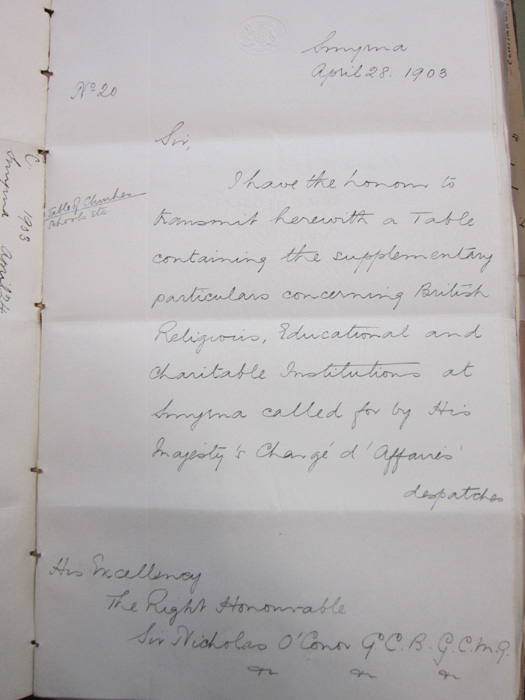 Smyrna
April 28. 1903
No 20
Sir,
I have the honour to
transmit herewith a Table
containing the supplementary
particulars concerning British
Religious, Educational and
Charitable Institutions at
Smyrna called for by His
Majesty's Chargé d'Affaires'
despatches
Table of Churches
Schools etc
His Excellency
The Right Honourable
Sir Nicholas O'Conor G.C.B. G.C.M.G.
Smyrna